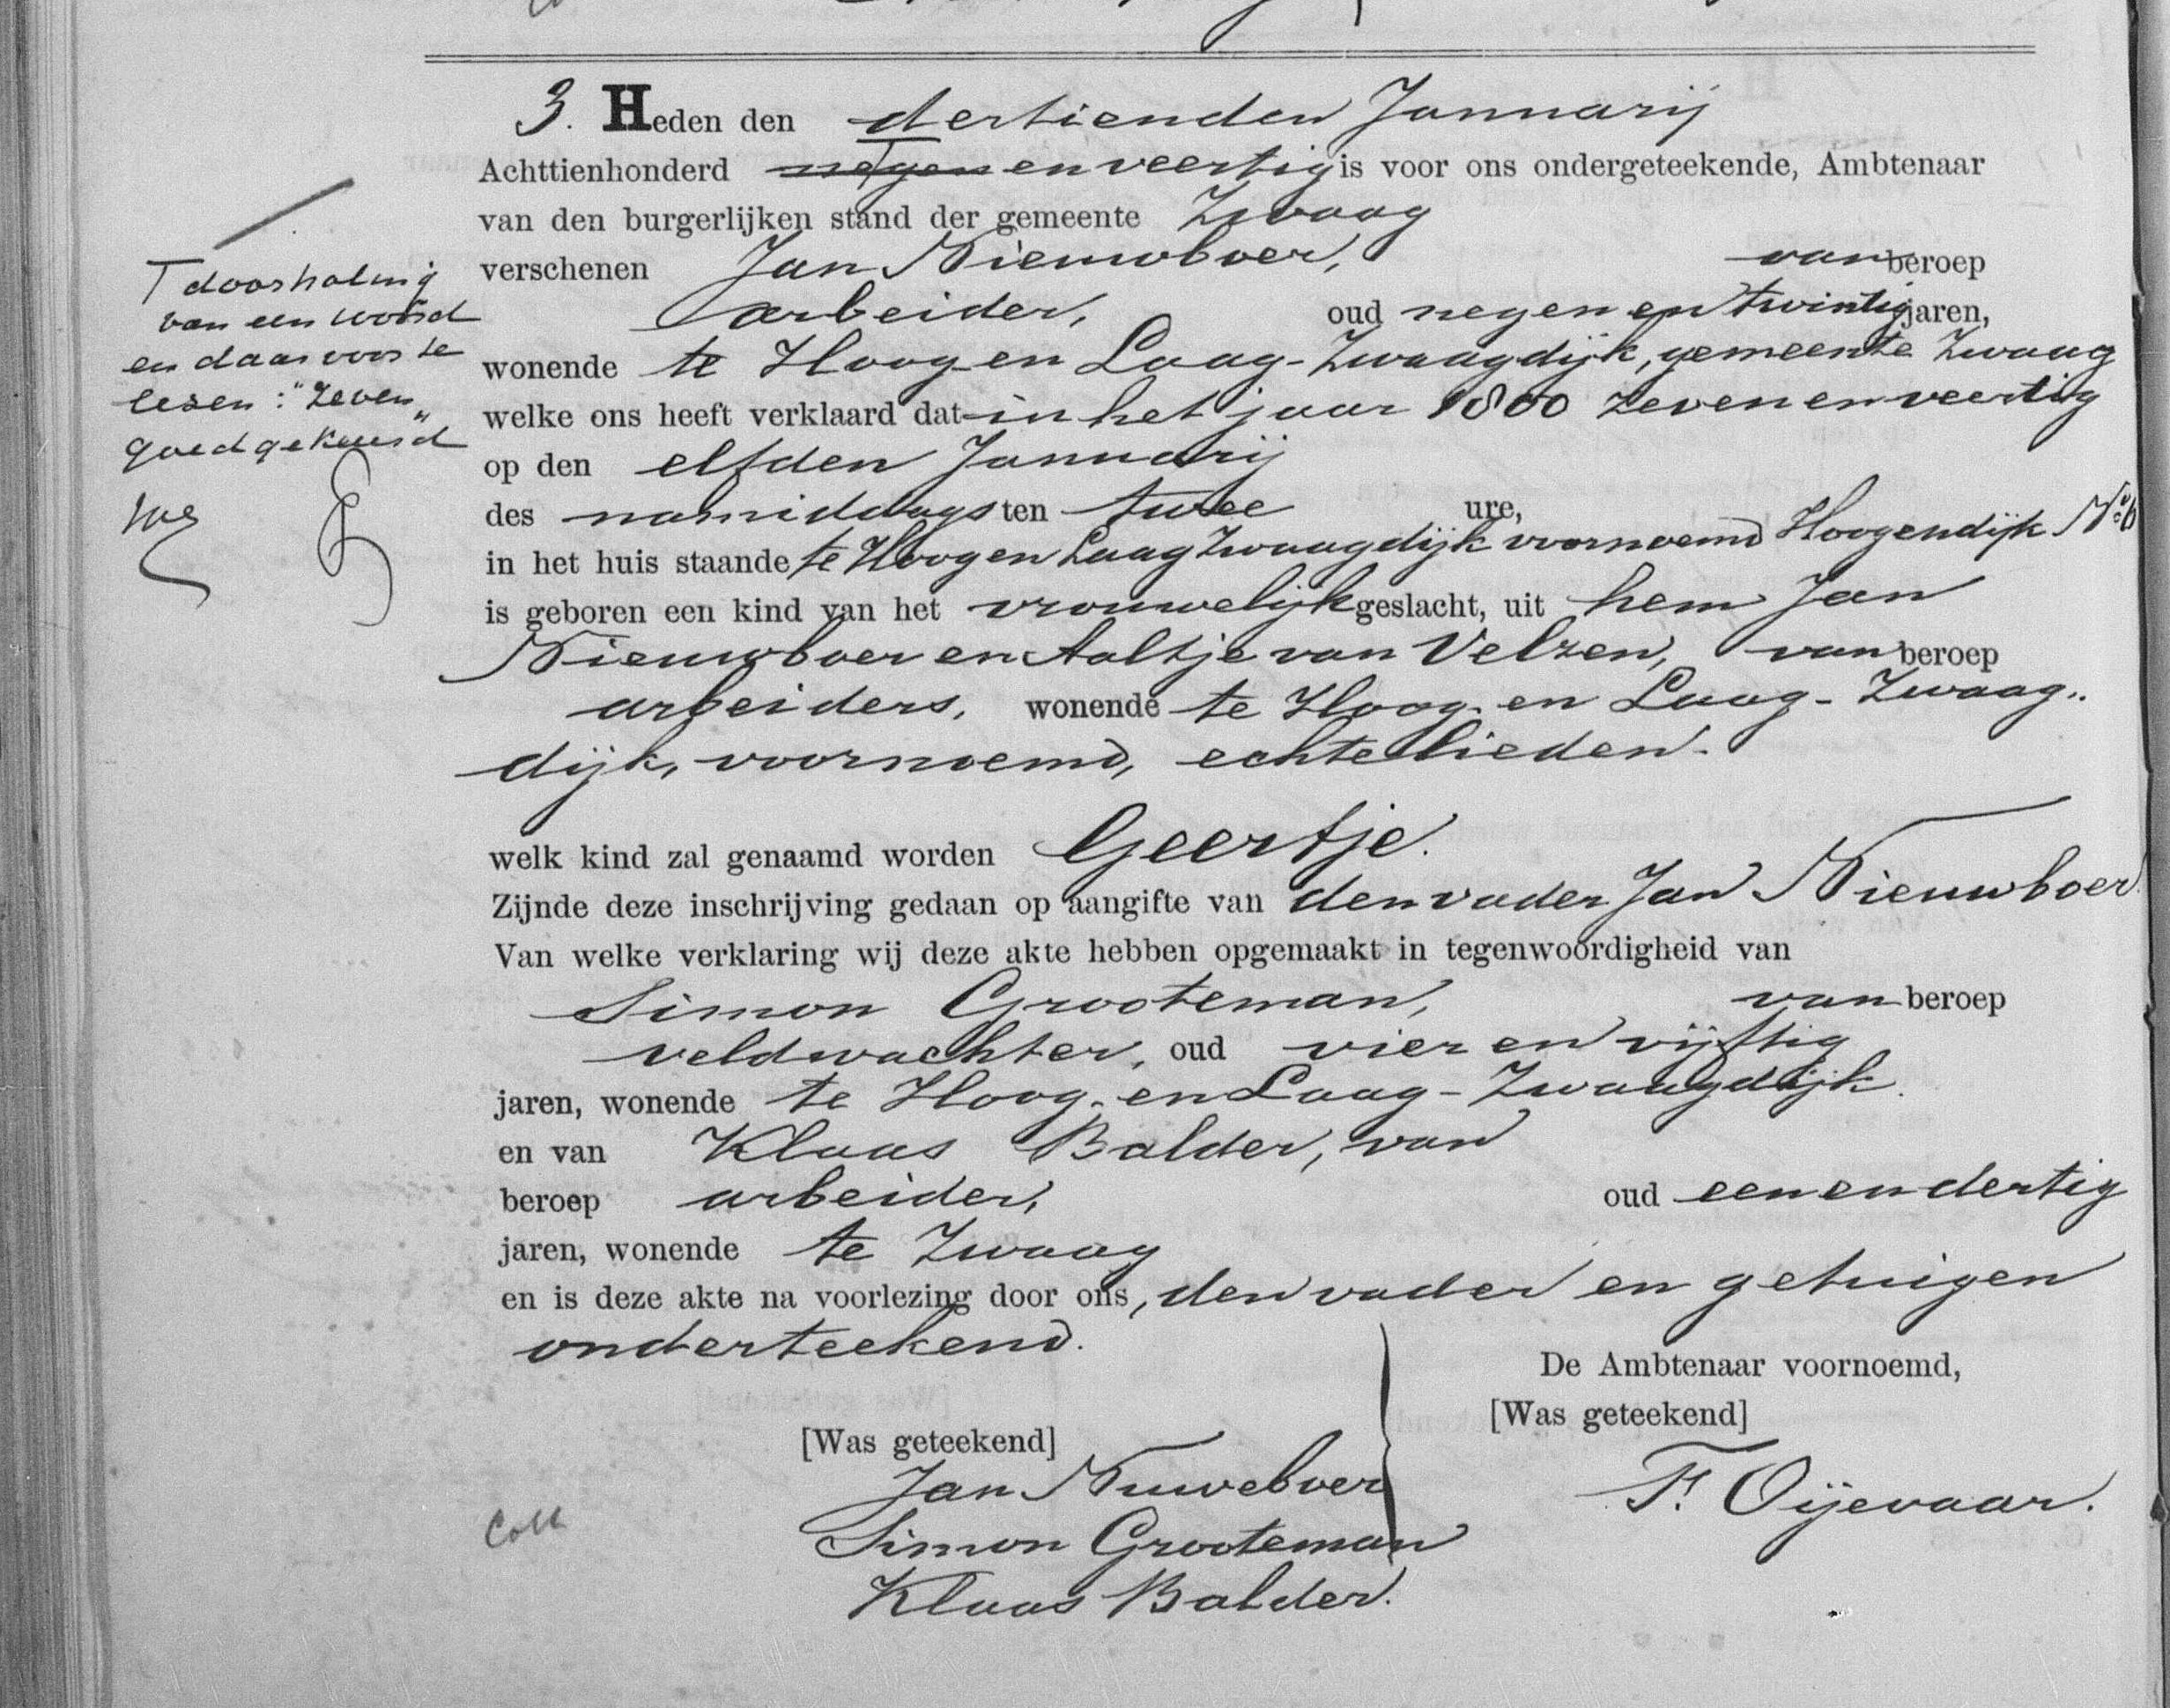 3. Heden den dertienden Januarij
Achttienhonderd negen en veertig is voor ons ondergeteekende, Ambtenaar
van den burgerlijken stand der gemeente Zwaag
verschenen Jan Nieuwboer, van beroep
arbeider, oud negen en twintig jaren,
wonende te Hoog en Laag-Zwaagdijk, gemeente Zwaag
welke ons heeft verklaard dat in het jaar 1800 zeven en veertig
op den elfden Januarij
des namiddags ten twee ure,
in het huis staande te Hoog en Laag Zwaagdijk voornoemd Hoogendijk No 6
is geboren een kind van het vrouwelijk geslacht, uit hem Jan
Nieuwboer en Aaltje van Velzen, van beroep
arbeiders, wonende te Hoog- en Laag-Zwaag-
dijk, voornoemd, echtelieden.
welk kind zal genaamd worden Geertje.
Zijnde deze inschrijving gedaan op aangifte van den vader Jan Nieuwboer
Van welke verklaring wij deze akte hebben opgemaakt in tegenwoordigheid van
Simon Grooteman, van beroep
veldwachter, oud vier en vijftig
jaren, wonende te Hoog- en Laag-Zwaagdijk.
en van Klaas Balder, van
beroep arbeider, oud een en dertig
jaren, wonende te Zwaag
en is deze akte na voorlezing door ons, den vader en getuigen
onderteekend.
De Ambtenaar voornoemd,
[Was geteekend]
F. Oijevaar.
[Was geteekend]
Jan Nuweboer
Simon Grooteman
Klaas Balder.
T doorhaling
van een woord
en daarvoor te
lesen: "Zeven"
goedgekeurd
Coll